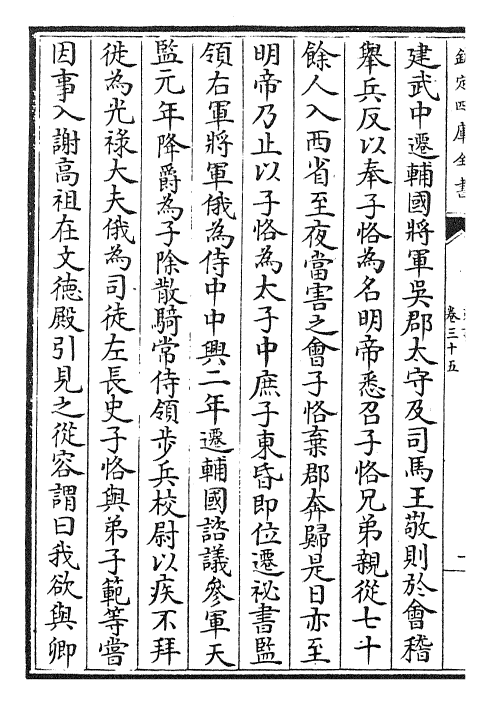 欽定四庫全書
卷三十五
建武中遷輔國將軍吳郡太守及司馬王敬則於會稽
舉兵反以奉子恪為名明帝悉召子恪兄弟親從七十
餘人入西省至夜當害之會子恪棄郡奔歸是日亦至
明帝乃止以子恪為太子中庶子東昏即位遷祕書監
領右軍將軍俄為侍中中興二年遷輔國諮議參軍天
監元年降爵為子除散騎常侍領步兵校尉以疾不拜
徙為光祿大夫俄為司徒左長史子恪與弟子範等嘗
因事入謝高祖在文德殿引見之從容謂曰我欲與卿